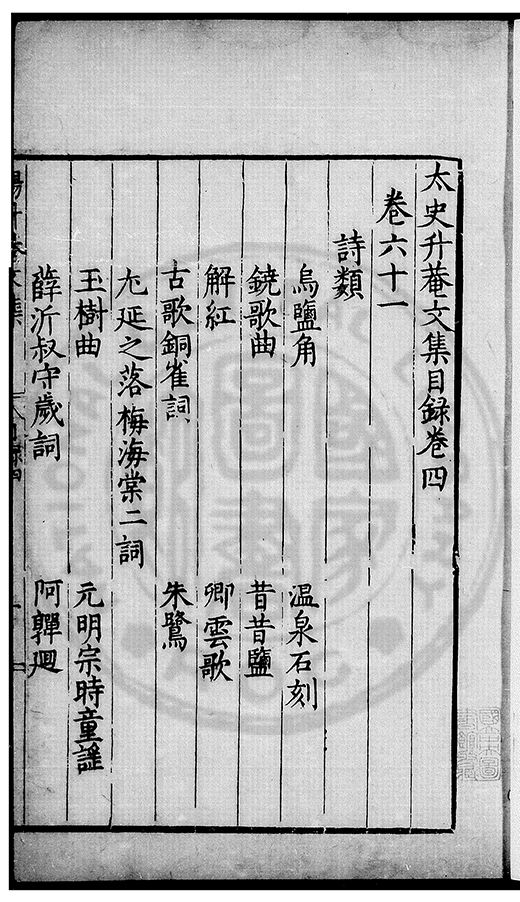 太史升菴文集目録卷四
卷六十一
詩類
烏鹽角 温泉石刻
鐃歌曲 昔昔鹽
解紅 卿雲歌
古歌銅雀詞 朱鷺
尢延之落梅海棠二詞
玉樹曲 元明宗時童謡
薛沂叔守歲詞 阿嚲廻